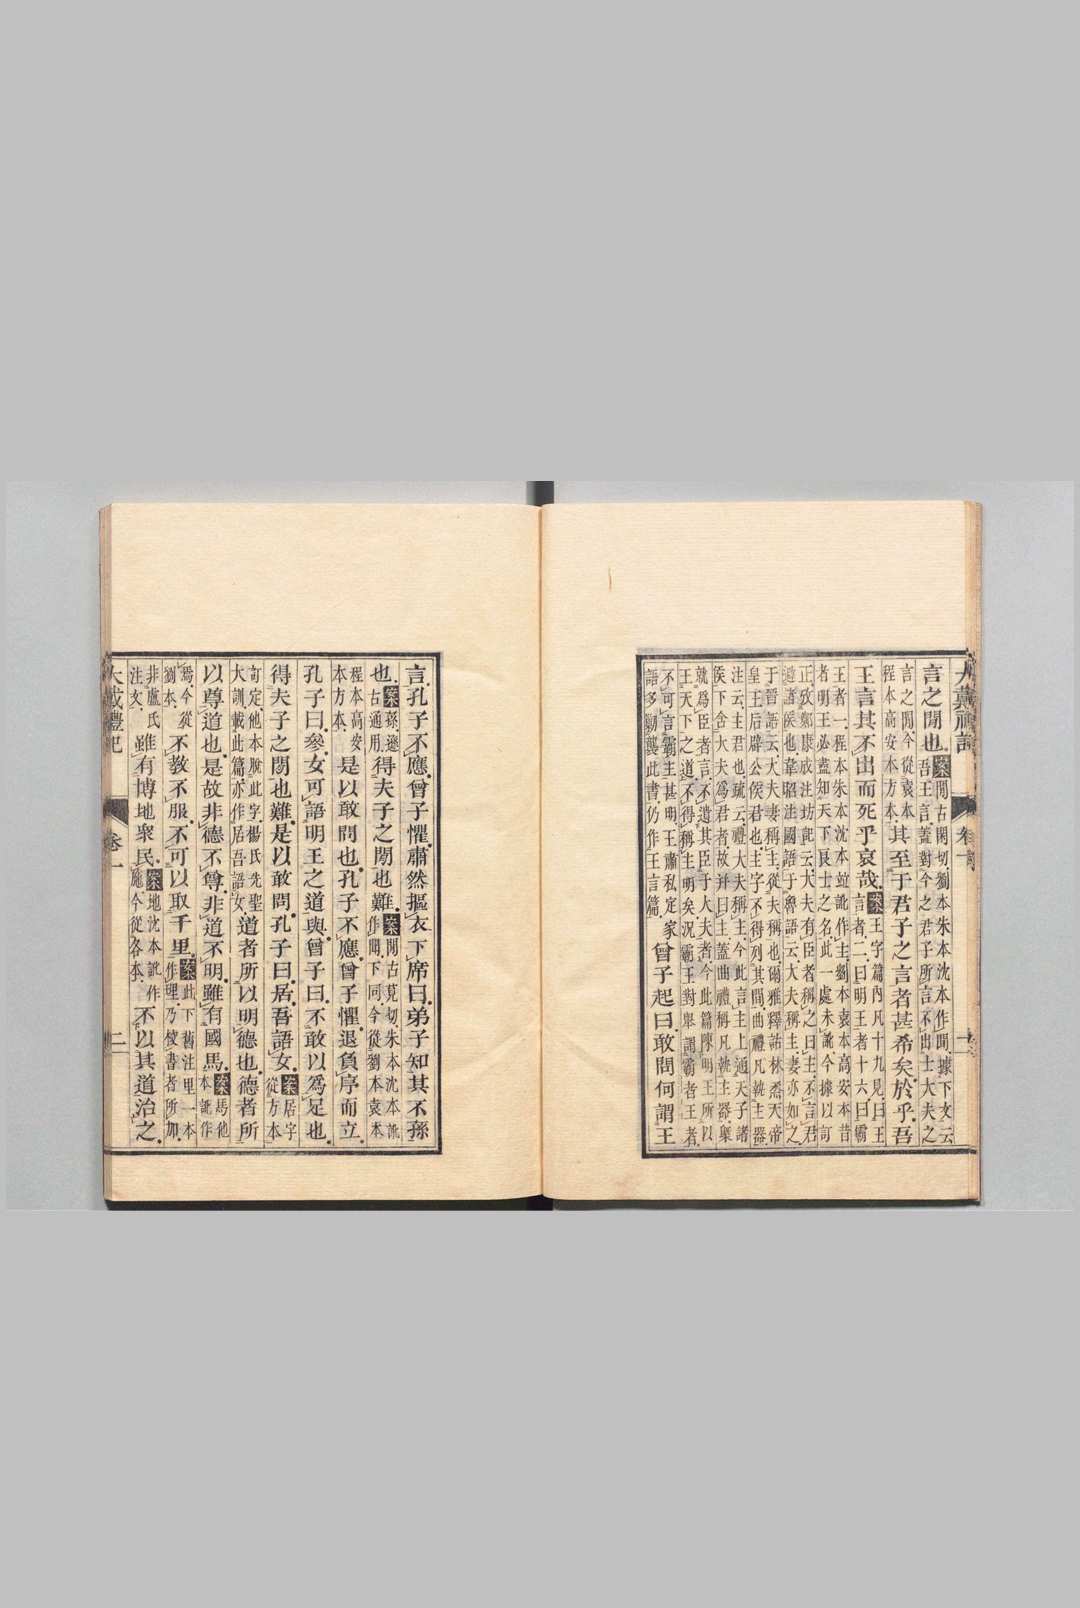 言之閒也案閒古閑切劉本朱本沈本作聞據下文云
吾王言蓋對今之君子所言不出士大夫之
言之閒今從袁本
程本高安本方本其至于君子之言者甚希矣於乎吾
王言其不出而死乎哀哉案王字篇內凡十九見曰王
言者二曰明王者十六曰霸
王者一程本朱本沈本並訛作主劉本袁本高安本昔
者明王必盡知天下良士之名此一處未訛今據以訂
正攷鄭康成注坊記云大夫有臣者稱之曰主不言君
避諸侯也韋昭注國語于魯語云大夫稱主妻亦如之
于晉語云大夫妻稱主從夫稱也爾雅釋詁林烝天帝
皇王后辟公侯君也主字不得列其間曲禮凡執主器
注云主君也疏云禮大夫稱主今此言主上通天子諸
侯下含大夫為君者故并曰主蓋曲禮稱凡執主器槩
就為臣者言不遺其臣于大夫者今此篇陳明王所以
王天下之道不得稱主明矣況霸王對舉謂霸者王者
不可言霸主甚明王肅私定家
語多勦襲此書仍作王言篇曾子起曰敢問何謂王
大戴禮記
卷一
二
言孔子不應曾子懼肅然摳衣下席曰弟子知其不孫
也案孫遜
古通用得夫子之閒也難案閒古莧切朱本沈本訛
作聞下同今從劉本袁本
程本高安
本方本是以敢問也孔子不應曾子懼退負序而立
孔子曰參女可語明王之道與曾子曰不敢以為足也
得夫子之閒也難是以敢問孔子曰居吾語女案居字
從方本
訂定他本脫此字楊氏先聖
大訓載此篇亦作居吾語女道者所以明德也德者所
以尊道也是故非德不尊非道不明雖有國馬案馬他
本訛作
焉今從
劉本不教不服不可以取千里案此下舊注里一本
作理乃校書者所加
非盧氏
注文雖有博地衆民案地沈本訛作
施今從各本不以其道治之